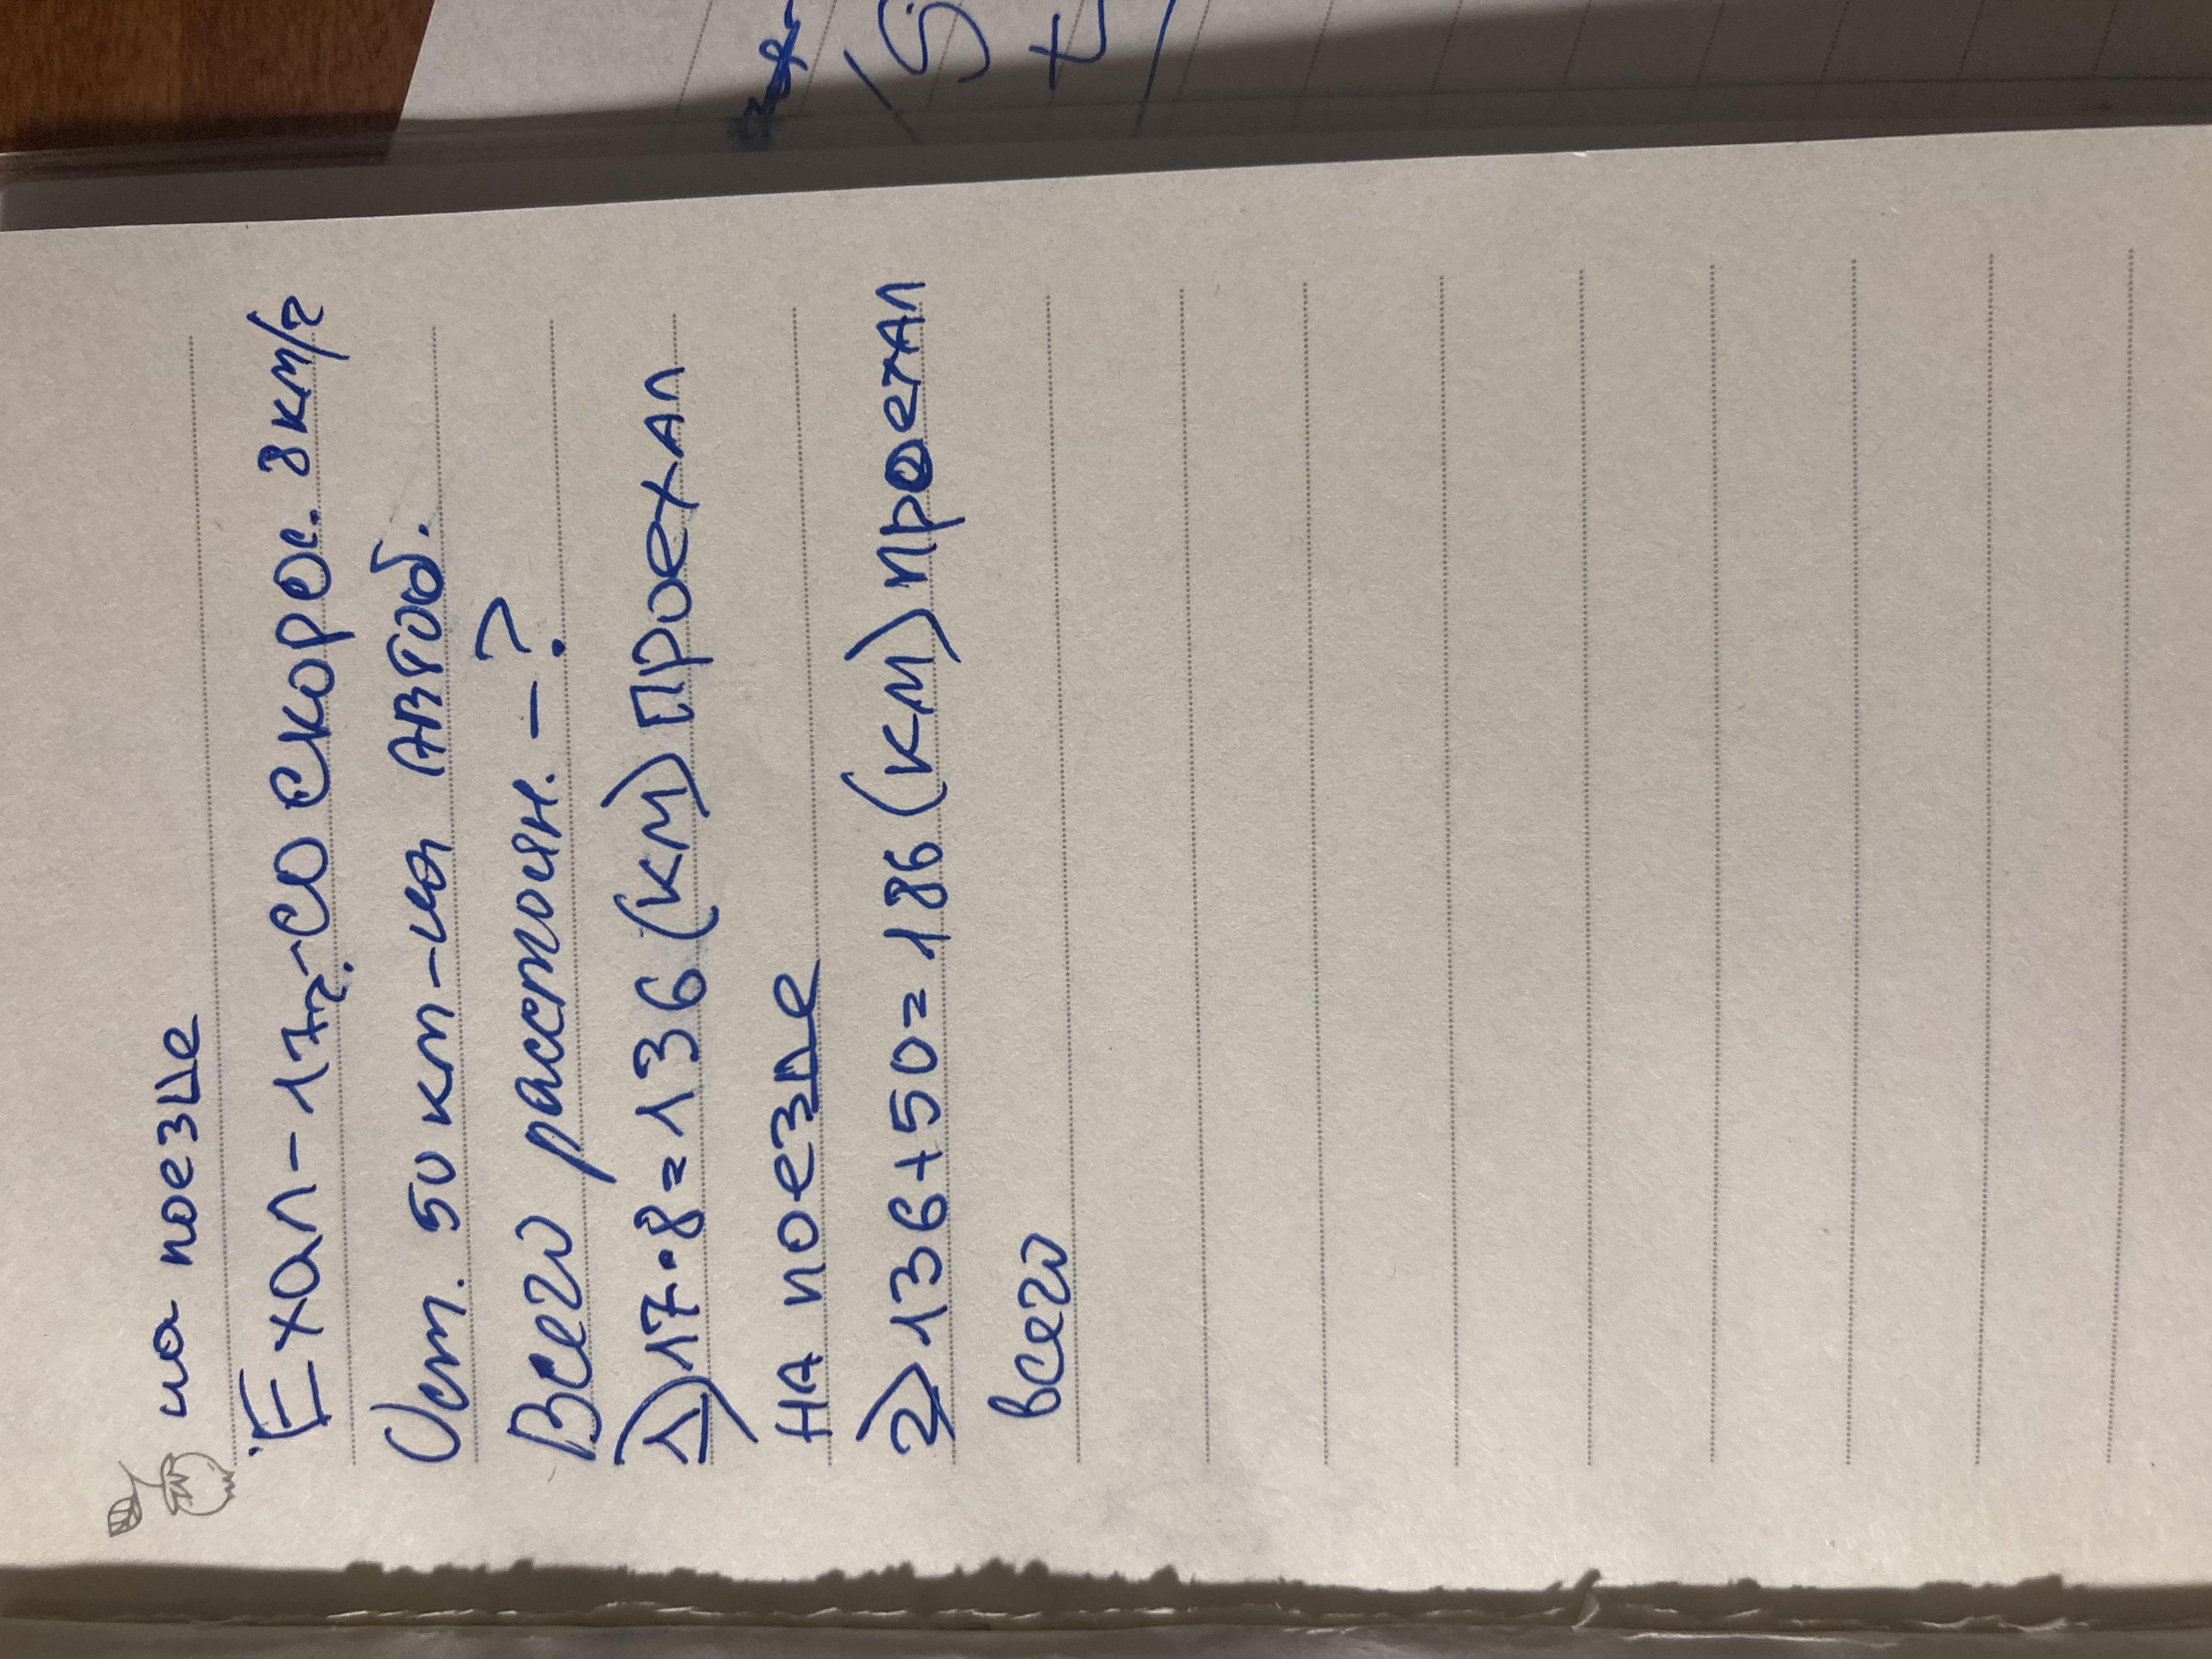 на поезде
Ехал-17ч.-со скорос. 8км/ч
Ост. 50 км-на автоб.
Всего расстоян. -?
1) 17·8=136(км) проехал
на поезде
2) 136+50=186(км) проехал
всего